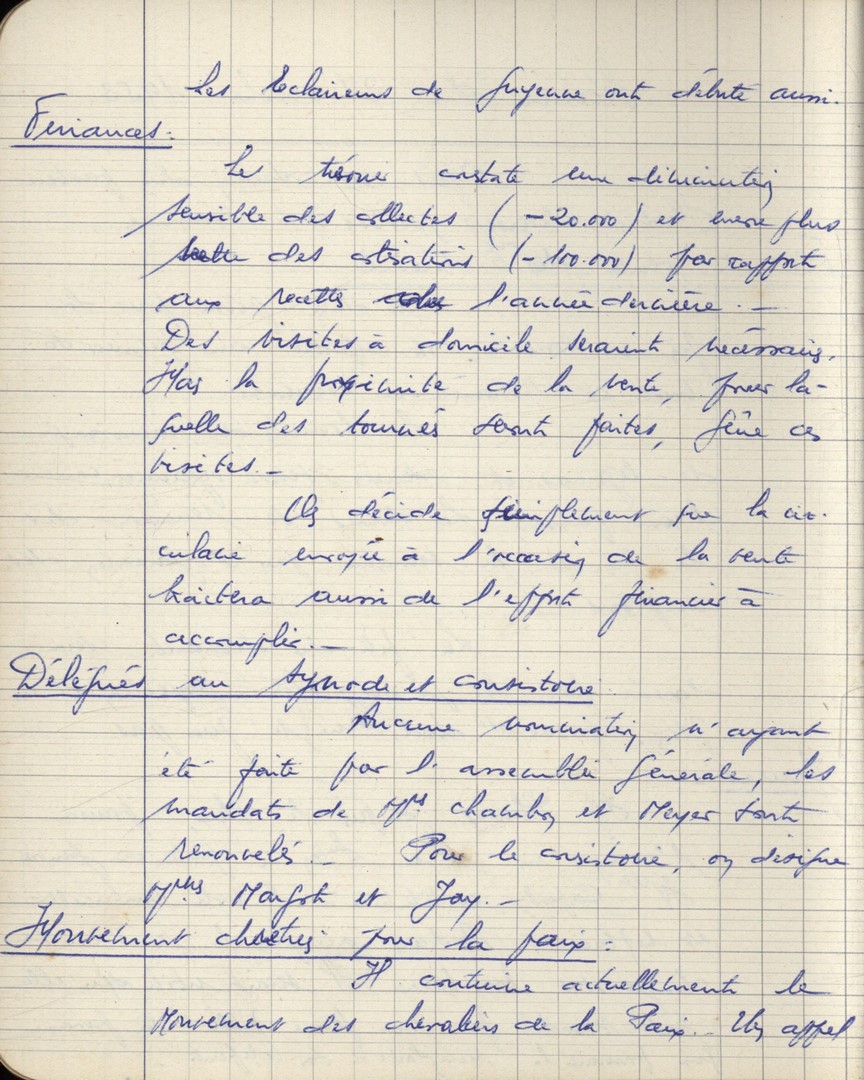 Les Eclaireurs de Guyenne ont débuté aussi.
Finances :
Le trésorier constate une diminution
sensible des collectes (-20.000) et encore plus
des cotisations (-100.000) par rapport
aux recettes l'année dernière. -
Des visites à domicile seraient nécessaires.
Mais la proximité de la vente, pour la-
quelle des tournées seront faites, gêne ces
visites. -
On décide simplement que la cir-
culaire envoyée à l'occasion de la vente
traitera aussi de l'effort financier à
accomplir. -
Délégués au Synode et consistoire
Aucune nomination n'ayant
été faite par l'assemblée Générale, les
mandats de Mrs Chambon et Meyer sont
renouvelés. - Pour le consistoire, on désigne
Mrs et Jay. -
Mouvement chrétien pour la paix :
Il continue actuellement le
mouvement des chevaliers de la Paix. - Un appel